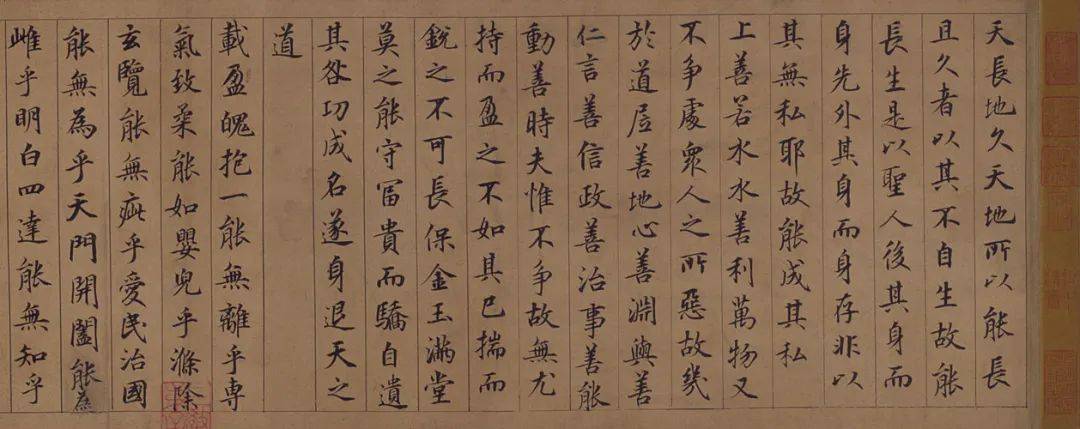 天長地久天地所以能長
且久者以其不自生故能
長生是以聖人後其身而
身先外其身而身存非以
其無私耶故能成其私
上善若水水善利萬物又
不爭處眾人之所惡故幾
於道居善地心善淵與善
仁言善信政善治事善能
動善時夫惟不爭故無尤
持而盈之不如其已揣而
銳之不可長保金玉滿堂
莫之能守富貴而驕自遺
其咎功成名遂身退天之
道
載盈魄抱一能無離乎専
氣致柔能如嬰兒乎滌除
玄覽能無疵乎愛民治國
能無為乎天門開闔能為
雌乎明白四達能無知乎